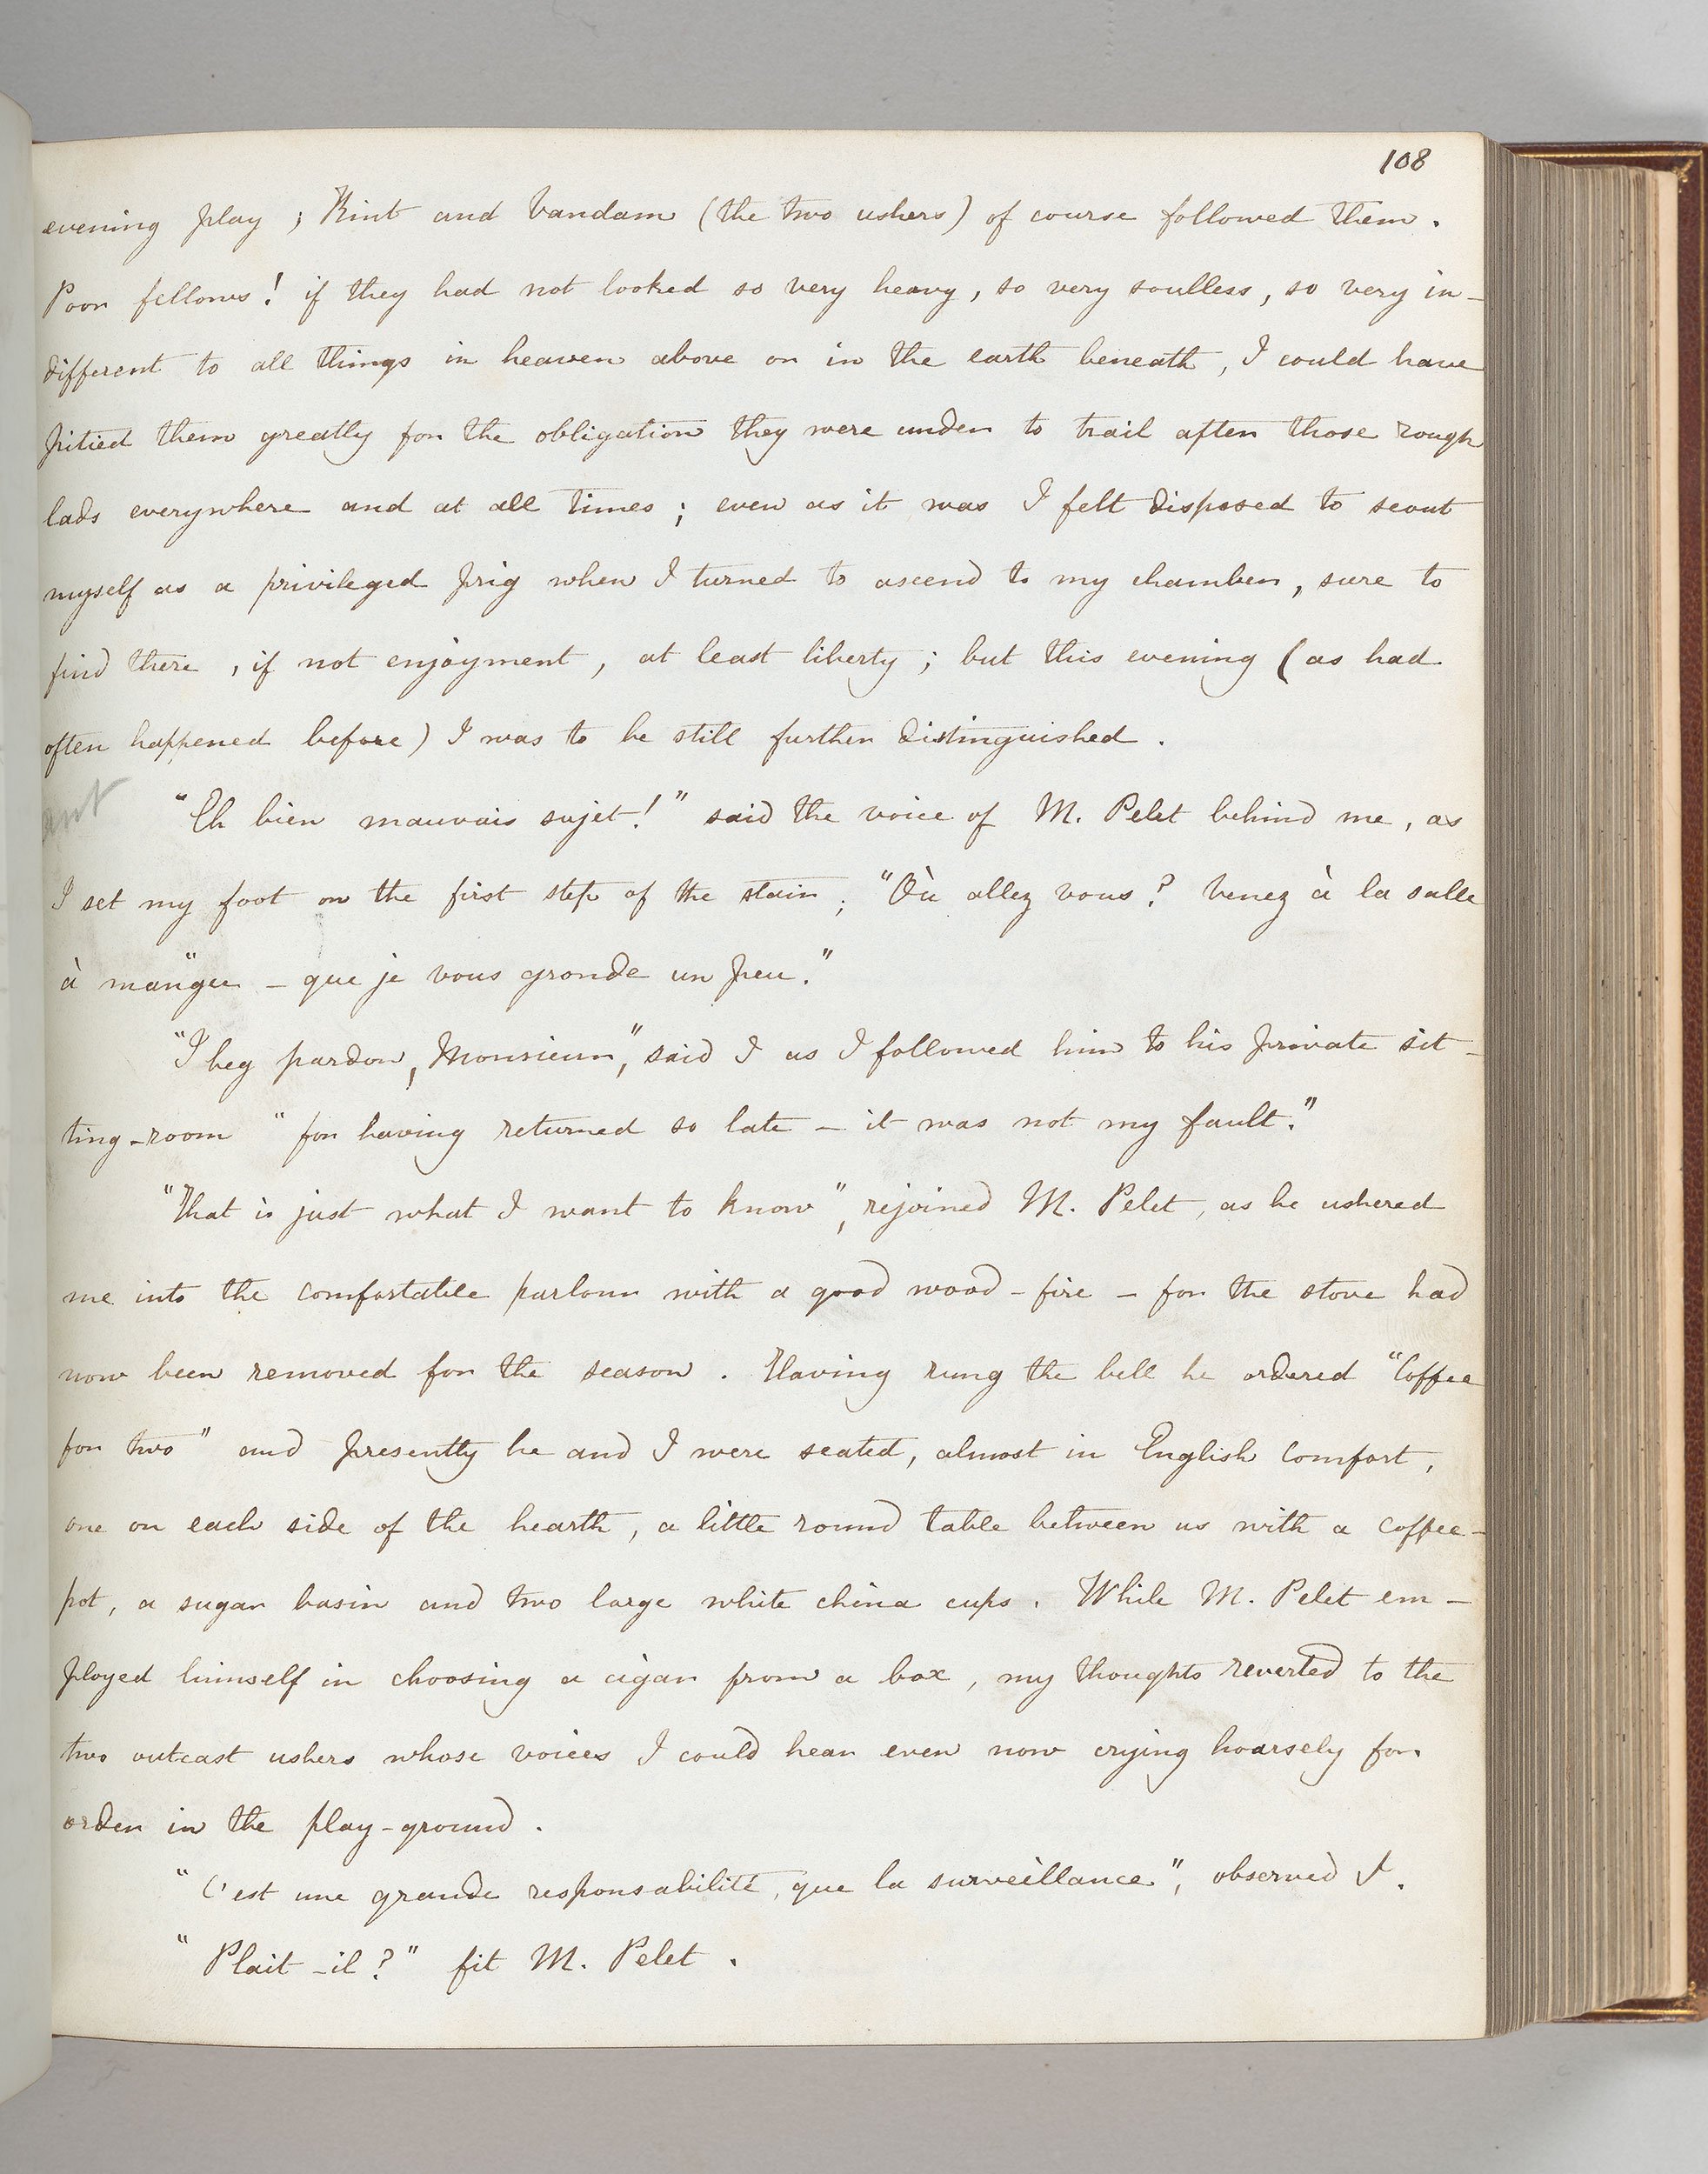 108
evening play ; Kint and Vandam (the two ushers) of course followed them.
Poor fellows! if they had not looked so very heavy, so very soulless, so very in-
different to all things in heaven above or in the earth beneath, I could have
pitied them greatly for the obligation they were under to trail after those rough
lads everywhere and at all times ; even as it was I felt disposed to scout
myself as a privileged prig when I turned to ascend to my chamber, sure to
find there , if not enjoyment , at least liberty ; but this evening (as had
often happened before) I was to be still further distinguished .
"Eh bien mauvais sujet!" said the voice of M. Pelet behind me, as
I set my foot on the first step of the stair ; "Où allez vous? Venez à la salle
à manger - que je vous gronde un peu."
"I beg pardon, Monsieur," said I as I followed him to his private sit-
ting-room "for having returned so late - it was not my fault."
"That is just what I want to know", rejoined M. Pelet, as he ushered
me into the comfortable parlour with a good wood-fire - for the stove had
now been removed for the season . Having rung the bell he ordered "Coffee
for two" and presently he and I were seated, almost in English comfort,
one on each side of the hearth, a little round table between us with a coffee-
pot, a sugar basin and two large white china cups . While M. Pelet em-
ployed himself in choosing a cigar from a box, my thoughts reverted to the
two outcast ushers whose voices I could hear even now crying hoarsely for
order in the play-ground .
"C'est une grande responsabilité, que la surveillance", observed I .
"Plait-il?" fit M. Pelet .